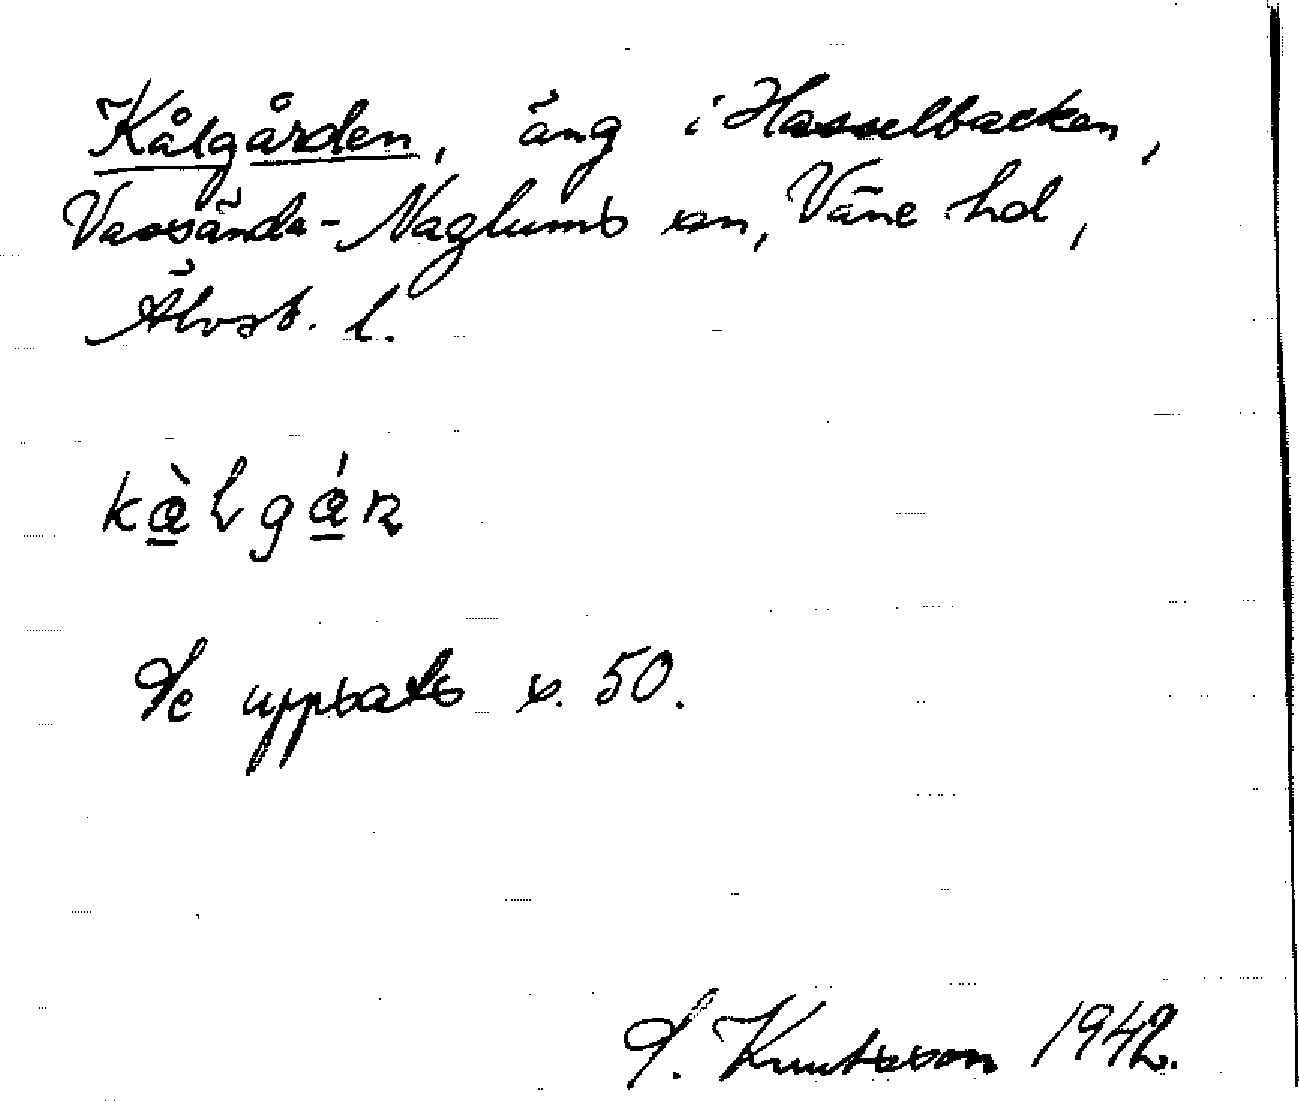 Kålgården, äng i Hasselbacken,
Vassända-Naglums sn, Väne hd,
Älvsb. l.
Se uppsats s. 50.
S. Knutsson 1942.